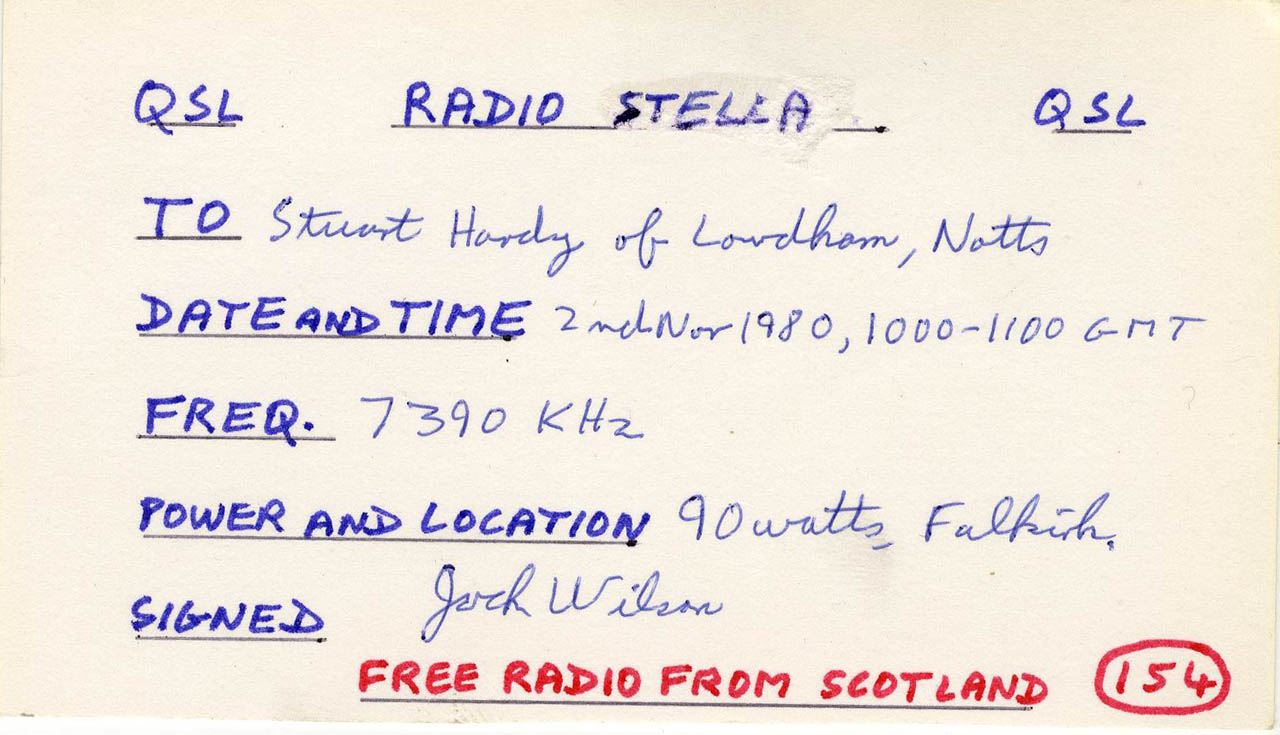 QSL RADIO STELLA QSL
TO Stuart Hardy of Lowdham, Notts
DATE AND TIME 2nd Nov 1980, 1000-1100 GMT
FREQ. 7390 KHz
POWER AND LOCATION 90 watts, Falkirk.
SIGNED Jock Wilson
FREE RADIO FROM SCOTLAND 154